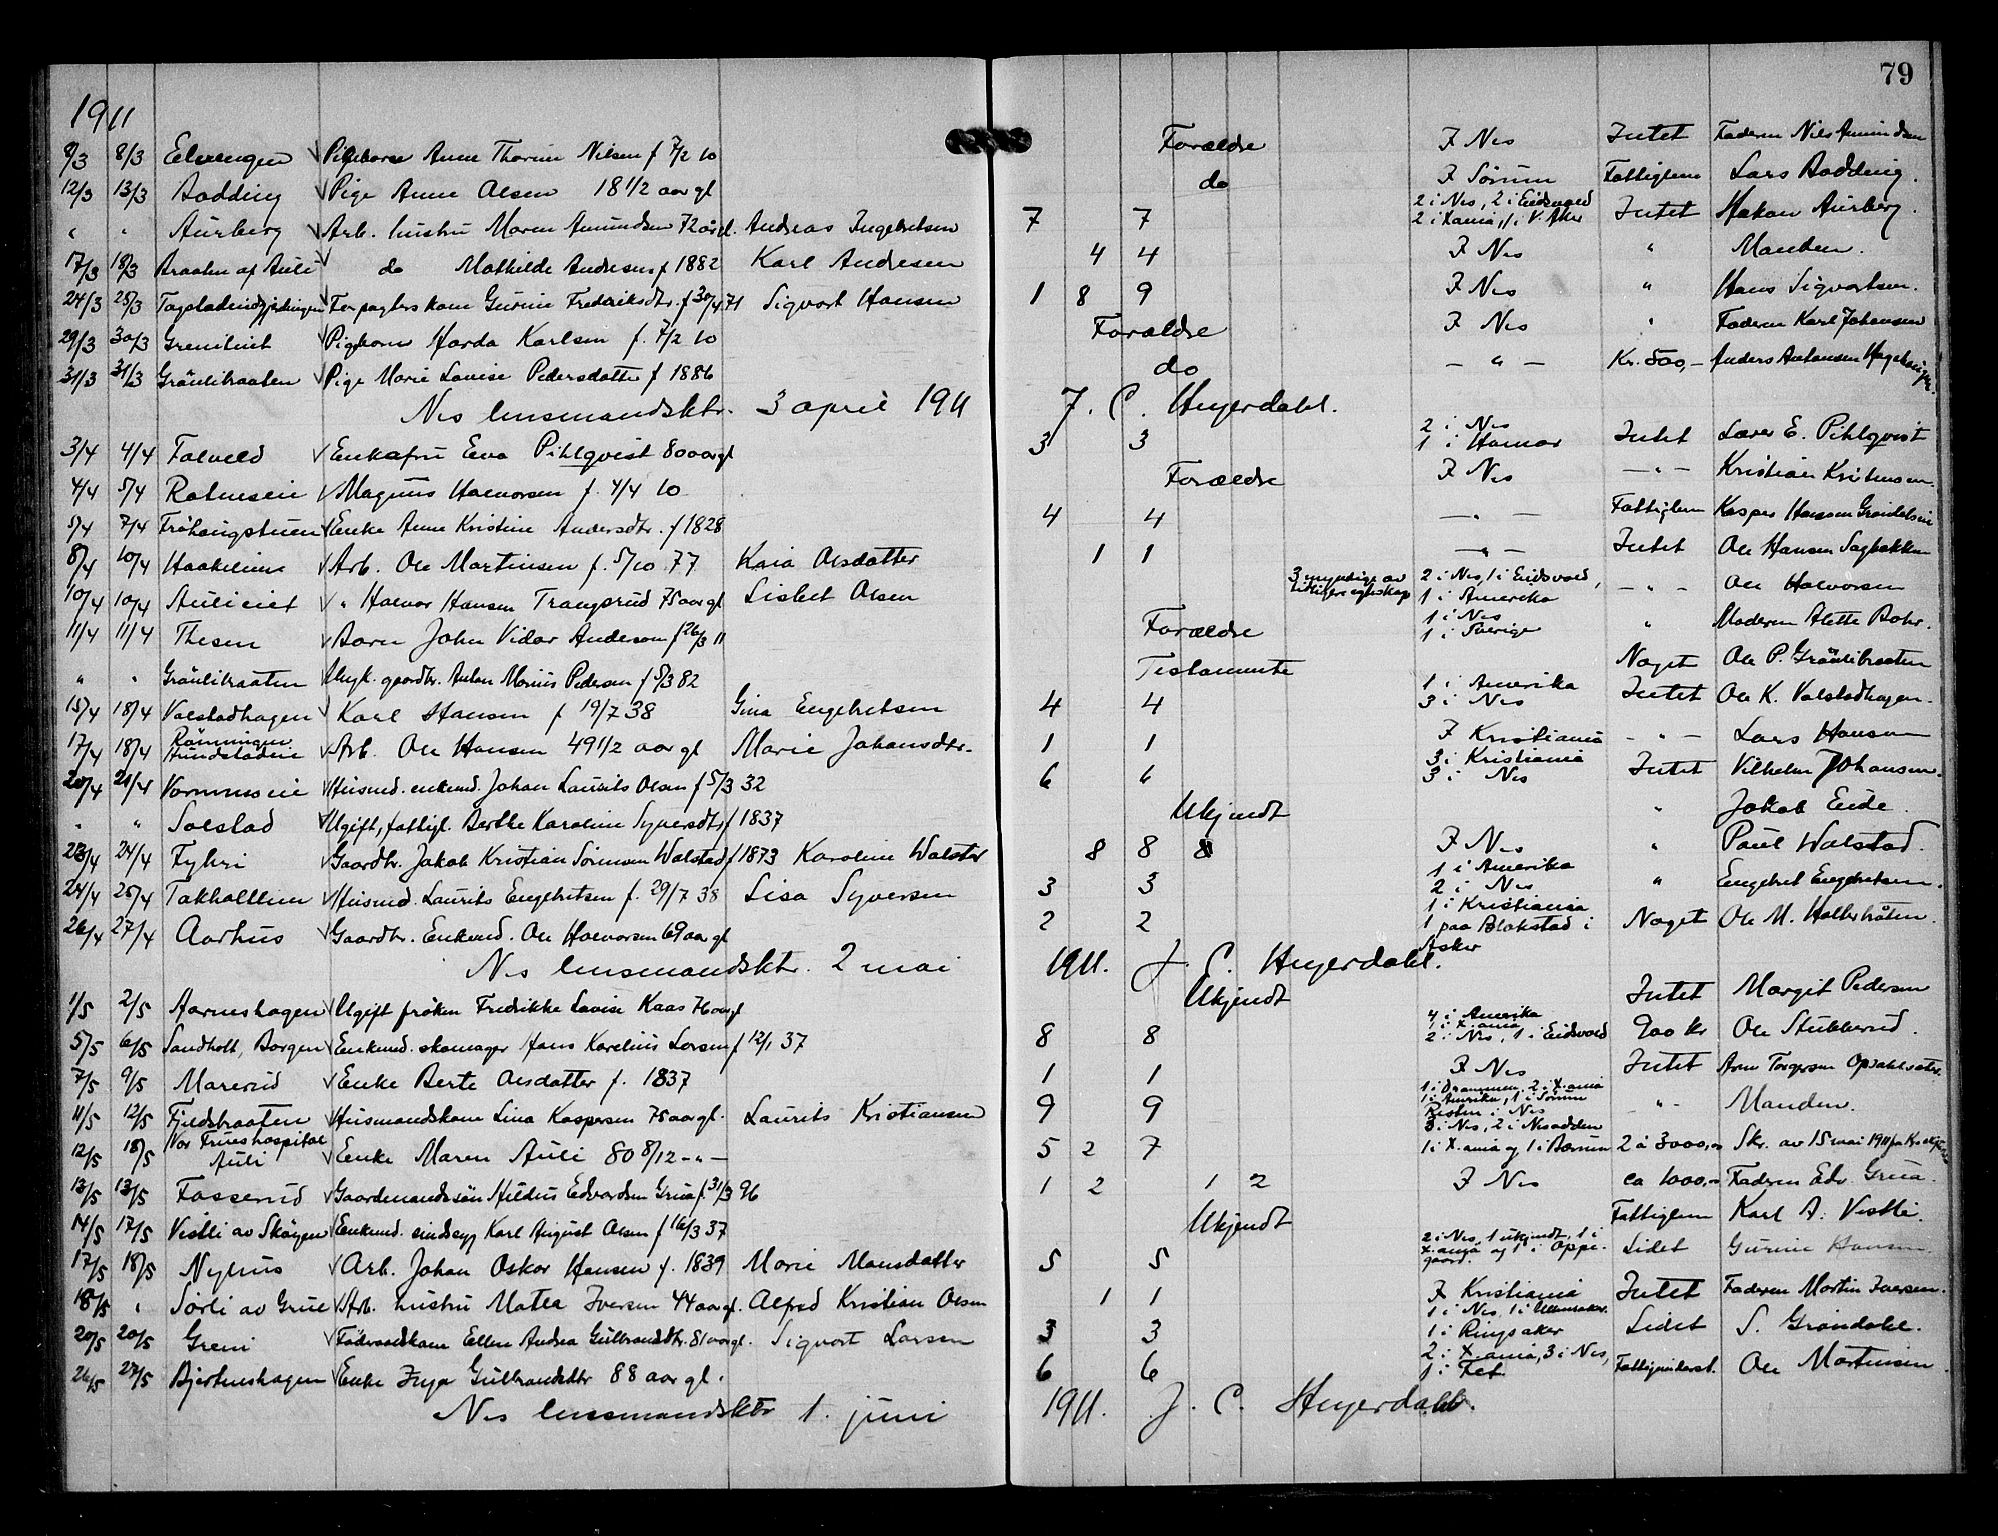 79
1911
9/3 8/3 Pikebarn Anne Thorine Nilsen f 7/2 10 Forældre I Nes Intet Faderen Nils Amundsen
12/3 13/3 Aadding Pige Anne Olsen 18 1/2 aar gl do I Sørum Fattiglem Lars Aadding.
" " Aurberg Arb. hustru Maren Amundsen 72 år gl. Andreas Ingebretsen 7 7 2 i Nes, 2 i Eidsvold 2 i X.ania, 1 i V. Aker Intet Hakon Aurberg.
17/3 18/3 Braaten af Auli do Mathilde Andresen f 1882 Karl Andresen 4 4 I Nes " Manden.
24/3 25/3 Forpagters kone Gurine Fredriksdtr. f 30/4 71 Sigvart Hansen 1 8 9 I Nes " Hans Sigvartsen.
29/3 30/3 Pigebarn Harda Karlsen f. 7/2 10 Forældre I Nes " Faderen Karl Johansen
31/3 31/3 Gräulibraaten Pige Marie Lovise Pedersdatter f 1886 do — " — Kr. 500,- Anders Antonsen
Nes lensmandsktr. 3 april 1911 J. C. Heyerdahl.
3/4 4/4 Folvold Enkefru Eva Pihlqvist 80 aar gl 3 3 2 i Nes 1 i Hamar Intet Lærer E. Pihlqvist
4/4 5/4 Magnus Halvorsen f. 4/4 10 Forældre I Nes — " — Kristian Kristensen.
5/4 7/4 Fröhaugstuen Enke Anne Kristine Andersdtr. f 1828 4 4 — " — Fattiglem Kasper Hansen
8/4 10/4 Arb. Ole Martinsen f. 5/10 77 Kaia Olsdatter 1 1 — " — Intet Ole Hansen Sagbakken
10/4 10/4 Aulieiet " Halvor Hansen Trangsrud 75 aar gl Lisbet Olsen 3 myndige av tidligere egteskap 2 i Nes, 1 i Eidsvold, 1 i Amerika — " — Ole Halvorsen
11/4 11/4 Thesen Barn John Vidar Andersen f 26/3 11 Forældre 1 i Nes 1 i Sverige " Moderen Alette Bohr.
" " Gräulibraaten Ungk. gaardbr. Anton Marius Pedersen f 5/3 82 Testamente Noget Ole P. Gräulibraaten
15/4 18/4 Valstadhagen Karl Hansen f 19/7 38 Gina Engebretsen 4 4 1 i Amerika 3 i Nes Intet Ole K. Valstadhagen.
17/4 18/4 Rönningen Hundstadeie Arb. Ole Hansen 49 1/2 aar gl Marie Johansdtr. 1 1 I Kristiania — " — Lars Hansen
20/4 21/4 Husmd. enkemd. Johan Laurits Olsen f 5/3 32 6 6 3 i Kristiania 3 i Nes Intet Vilhelm Johansen.
" " Solstad Ugift, fattigl. Berthe Karoline Syversdtr f 1837 Ukjendt " Jakob Eide.
23/4 24/4 Fyhri Gaardbr. Jakob Kristian Sörensen Walstad f 1873 Karoline Walstad 8 8 8 I Nes " Paul Walstad.
24/4 25/4 Husmd. Laurits Engebretsen f. 29/7 38 Lisa Syversen 3 3 1 i Amerika 2 i Nes " Engebret Engebretsen.
26/4 27/4 Aarhus Gaardbr. Enkemd. Ole Halvorsen 69 aar gl 2 2 1 i Kristiania 1 paa Blakstad i Asker Noget Ole M.
Nes lensmandsktr. 2 mai 1911. J. C. Heyerdahl.
1/5 2/5 Aarneshagen Ugift fröken Fredrikke Lovise Kaas 76 aar gl Ukjendt Intet Margit Pedersen
5/5 6/5 Sandholt, Borgen Enkemd. skomager Hans Karelius Larsen f 12/1 37 8 8 4 i Amerika 1 i X.ania 2 i Nes, 1 i Eidsvold 900 kr Ole Stubberud.
7/5 9/5 Marerud Enke Berte Olsdatter f. 1837 1 1 I Nes Intet Arne Torgersen
11/5 12/5 Fjeldbraaten Husmandskone Lina Kaspersen 75 aar gl. Laurits Kristiansen 9 9 1 i Drammen, 2 i X.ania 1 i Amerika, 1 i Sörum Resten i Nes — " — Manden.
12/5 18/5 Vor Frues hospital Auli Enke Maren Auli 80 8/12 — " — 5 2 7 3 i Nes, 2 i Nesodden 1 i X.ania og 1 i Bærum 2 à 3000,00 Skr. av 15 mai 1911 fra
13/5 13/5 Fosserud Gaardmandssön Hildus Edvardsen Grua f. 31/3 96 1 2 1 2 I Nes ca 1000,00 Faderen Edv. Grua.
14/5 17/5 Vestli av Skögen Enkemd. sindssyg Karl August Olsen f 16/3 37 Ukjendt Fattiglem Karl A. Vestli.
17/5 18/5 Nyhus Arb. Johan Oskar Hansen f. 1839 Marie Monsdatter 5 5 2 i Nes, 1 ukjendt, 1 i X.ania og 1 i Oppegaard. Lidet Gurine Hansen.
18/5 " Sörli av Grue Arb. hustru Matea Iversen 44 aar gl. Alfred Kristian Olsen 1 1 I Kristiania Intet Faderen Martin Iversen.
20/5 20/5 Greni Föderaadkone Ellen Andrea Gulbrandsdtr. 81 aar gl. Sigvart Larsen 3 3 1 i Nes, 1 i Ullensaker 1 i Ringsaker Lidet S. Gröndahl.
26/5 27/5 Bjertneshagen Enke Inga Gulbrandsdtr 88 aar gl. 6 6 2 i X.ania, 3 i Nes, 1 i Fet Fattigunderst. Ole Martinsen
Nes lensmandsktr 1. juni 1911. J. C. Heyerdahl.